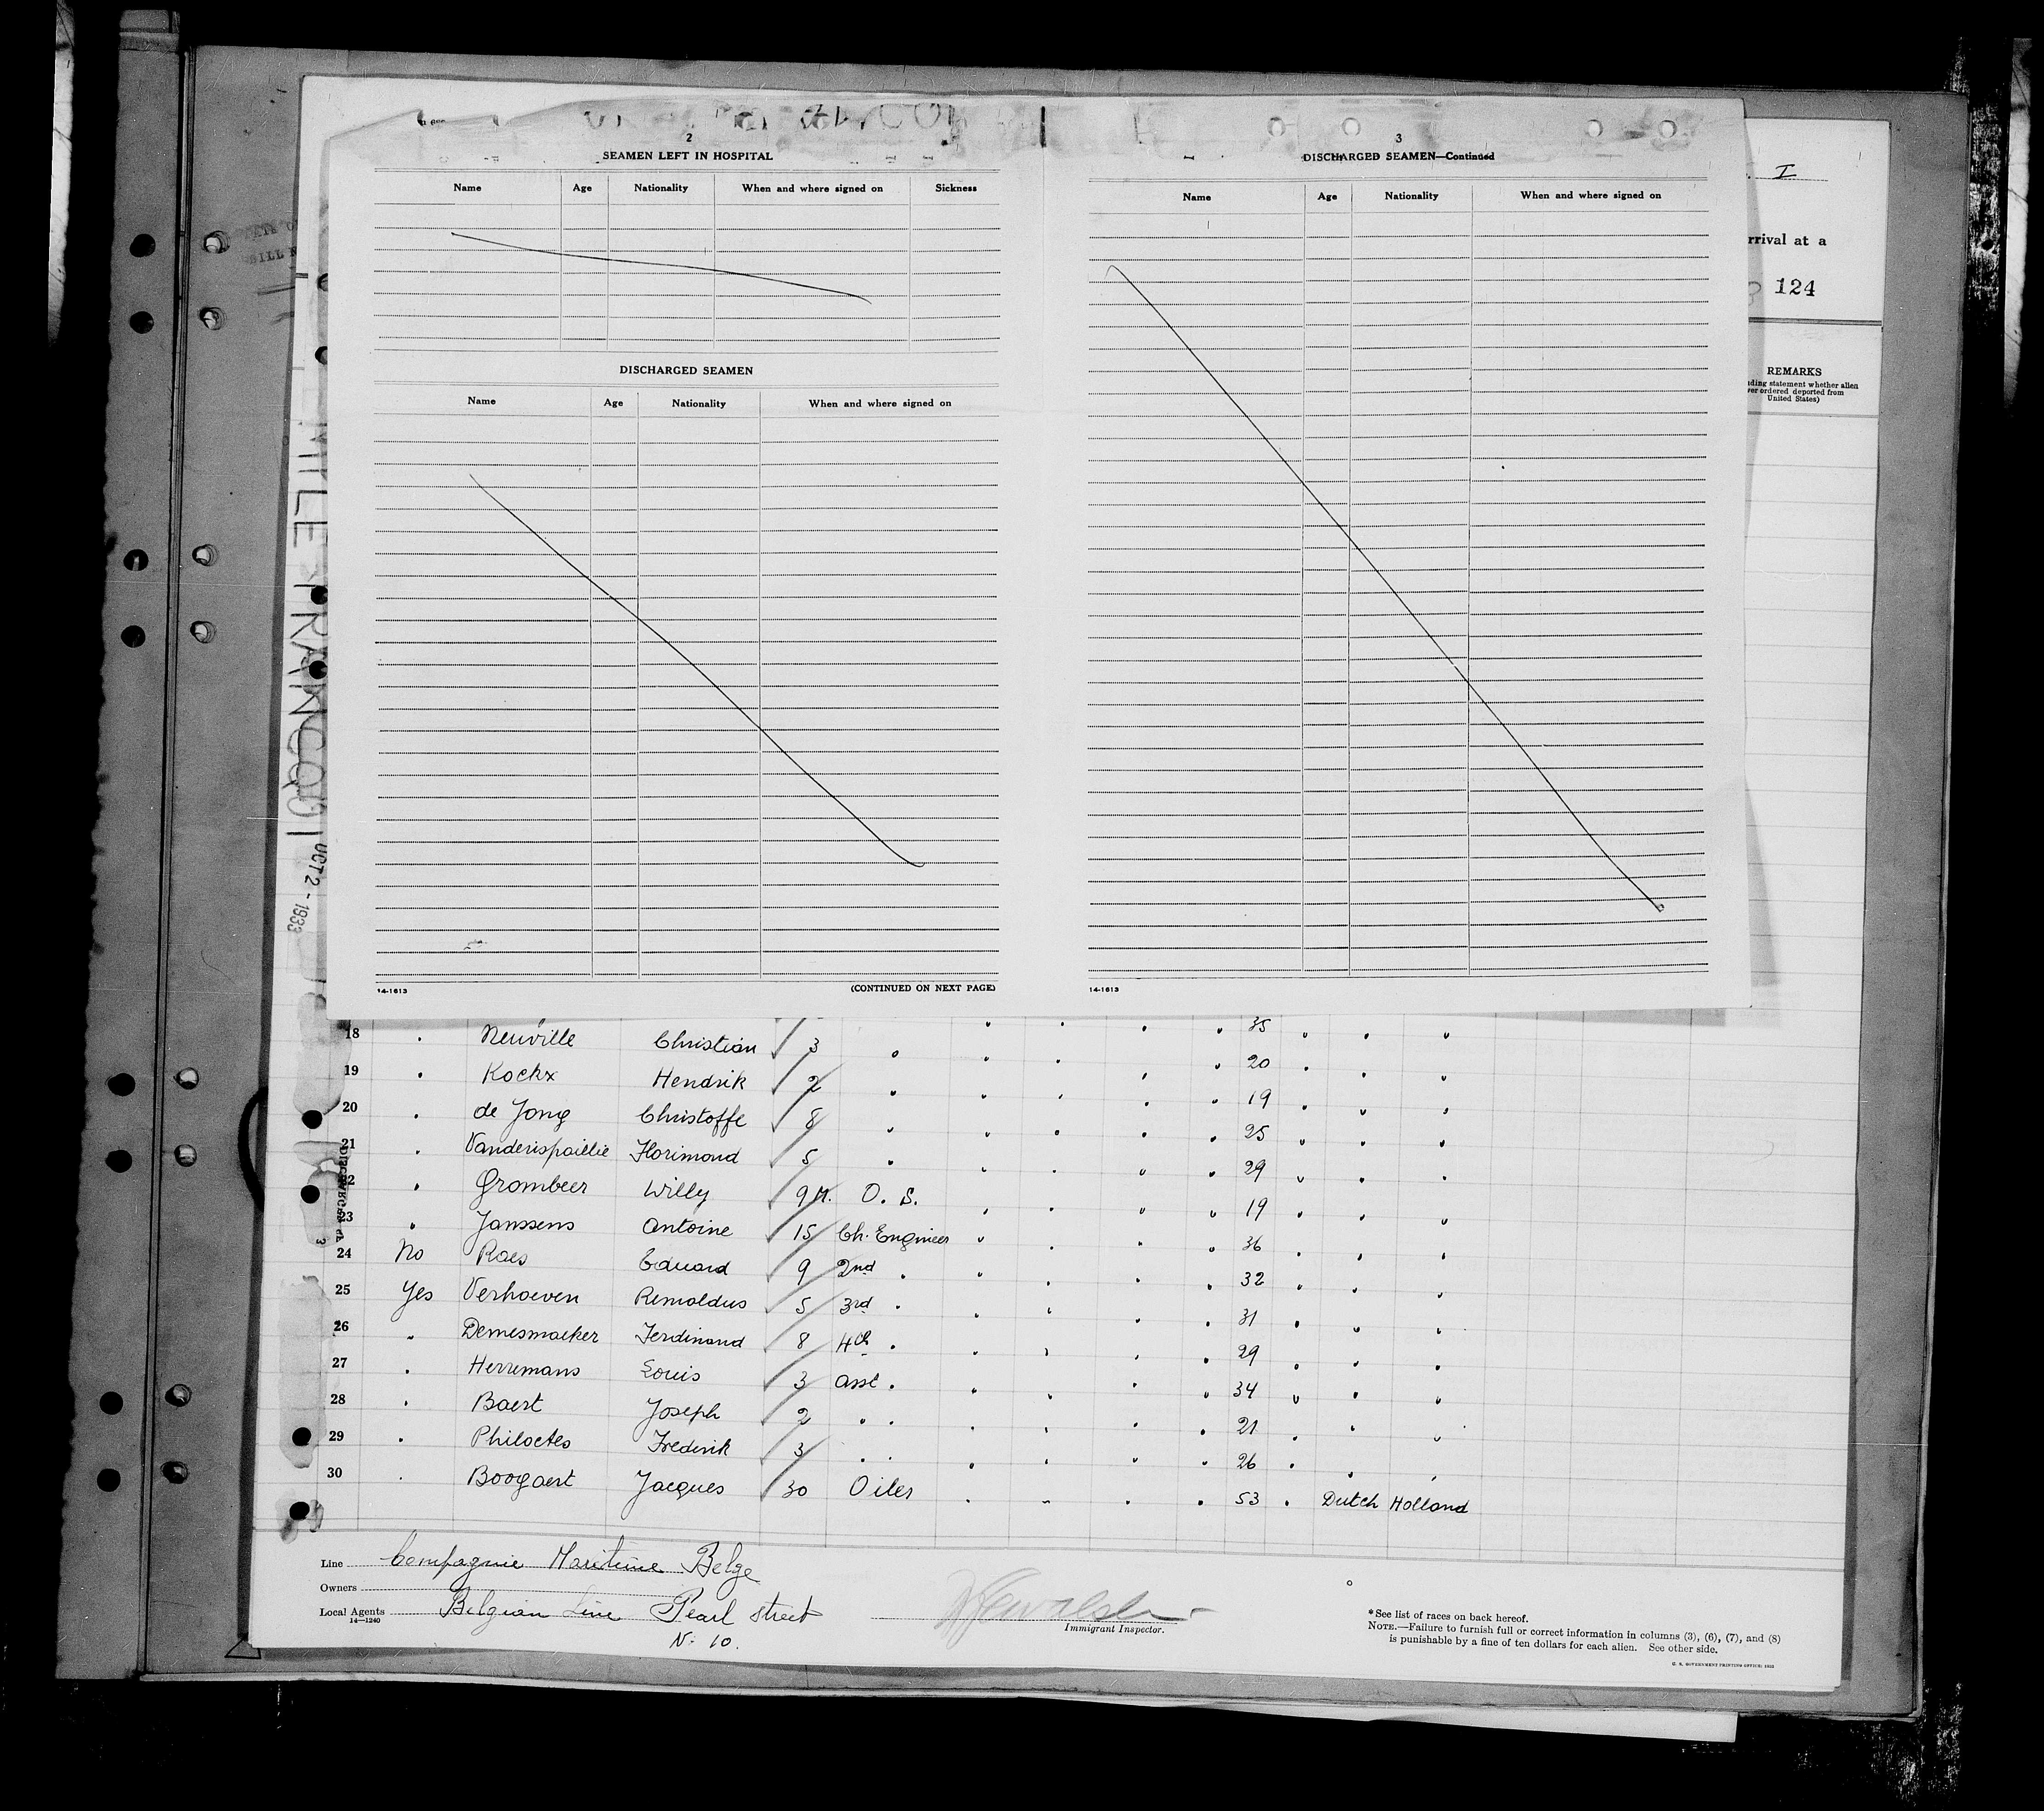 2
SEAMEN LEFT IN HOSPITAL
Name Age Nationality When and where signed on Sickness
DISCHARGED SEAMEN
Name Age Nationality When and where signed on
14-1613 (CONTINUED ON NEXT PAGE)
3
DISCHARGED SEAMEN—Continued
Name Age Nationality When and where signed on
14-1613
I
rrival at a
124
REMARKS
ding statement whether alien
ver ordered deported from
United States)
MILE FRANCQUI OCT 2 - 1933
35
18 " Neuville Christian 3 " " " " " 20 " " "
19 " Kockx Hendrik 2 " " " " " 19 " " "
20 " de Jong Christoffe 8 " " " " " 25 " " "
21 " Vanderispaillie Florimond 5 " " " " " 29 " " "
22 " Grombeer Willy 9 M. O. S. " " " " 19 " " "
23 " Janssens Antoine 15 Ch. Engineer " " " " 36 " " "
24 No Raes Eduard 9 2nd " " " " " 32 " " "
25 Yes Verhoeven Remoldus 5 3rd " " " " " 31 " " "
26 " Demesmaeker Ferdinand 8 4th " " " " " 29 " " "
27 " Herremans Louis 3 asst " " " " " 34 " " "
28 " Baert Joseph 2 " " " " " " 21 " " "
29 " Philoctes Frederik 3 " " " " " " 26 " " "
30 " Boogaert Jacques 30 Oiler " " " " 53 " Dutch Holland
Line Compagnie Maritime Belge
Owners
Local Agents Belgian Line Pearl street
14—1240
N: 10.
Immigrant Inspector.
*See list of races on back hereof.
NOTE.—Failure to furnish full or correct information in columns (3), (6), (7), and (8)
is punishable by a fine of ten dollars for each alien. See other side.